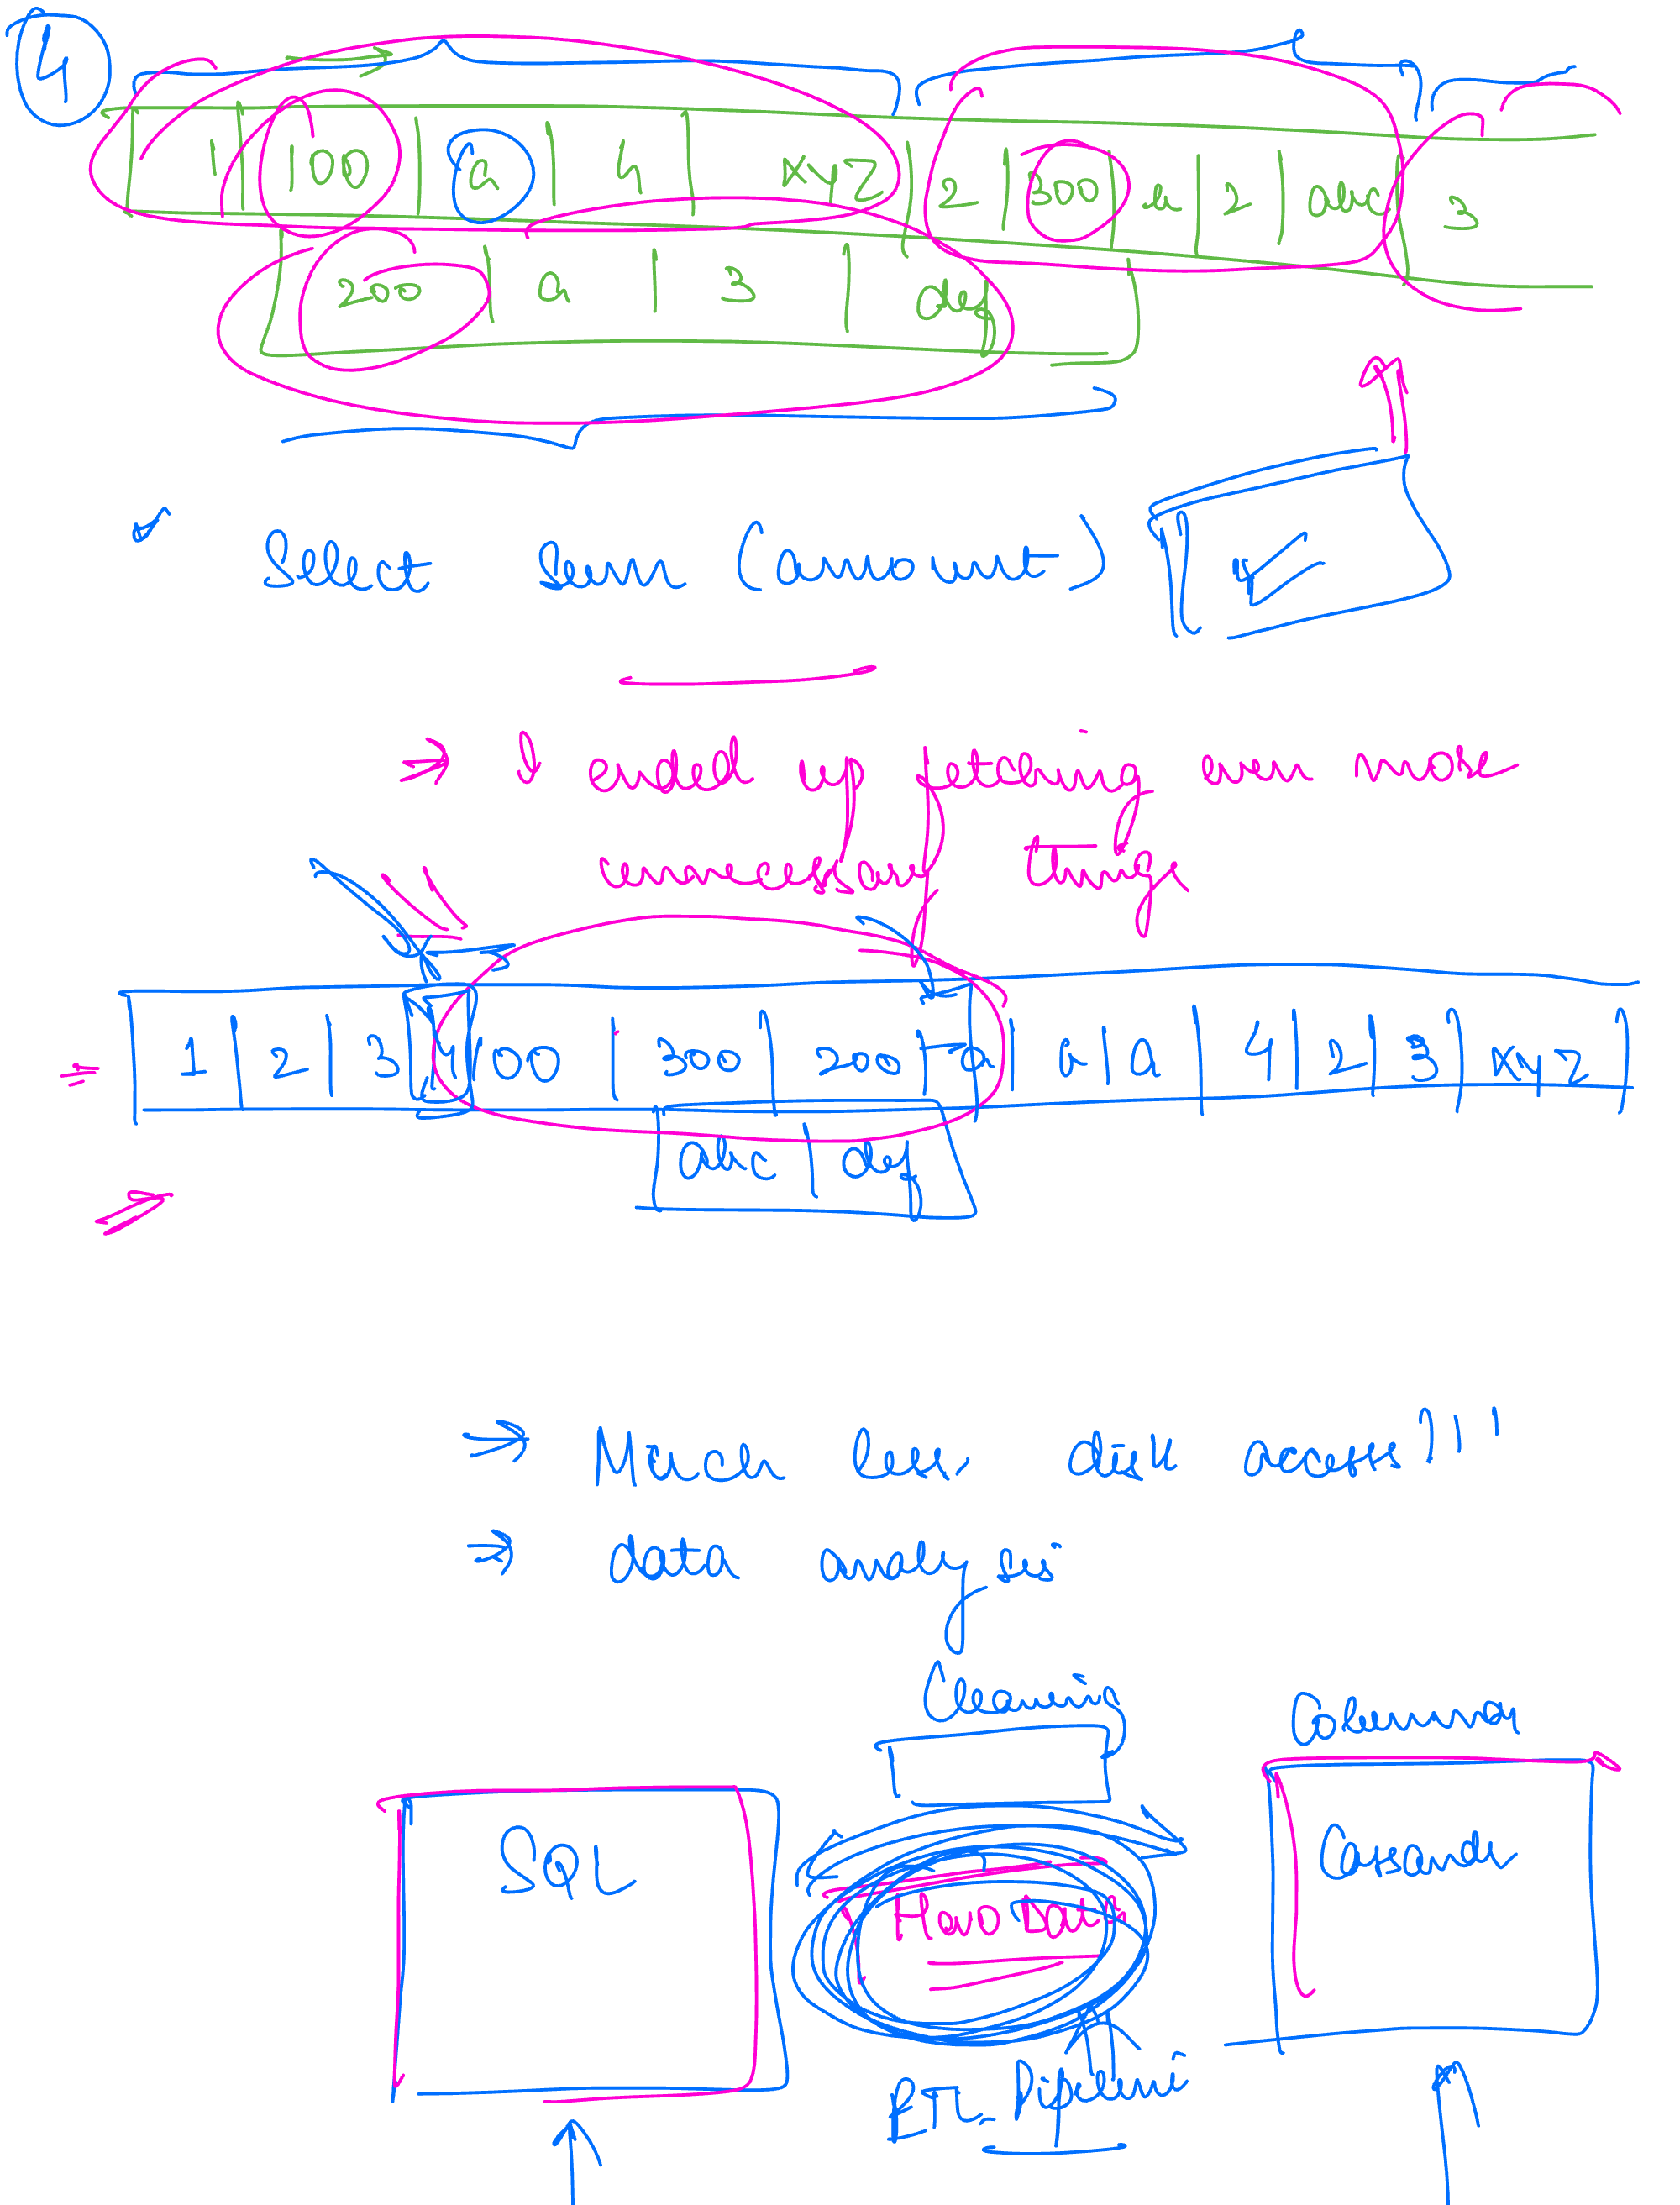 4
1 | 100 | a | 4 | xyz | 2 | 300 | a | 2 | abc | 3
200 | a | 3 | def
Select Sum (amount)
→ I ended up fetching even more
unnecessary things
= 1 | 2 | 3 | 100 | 300 | 200 | a | a | a | 4 | 2 | 3 | xyz
abc | def
→ Much less disk access!!!
→ data analysis
Cleaning
Columnar
SQL
Cassandr
ETL Pipeline